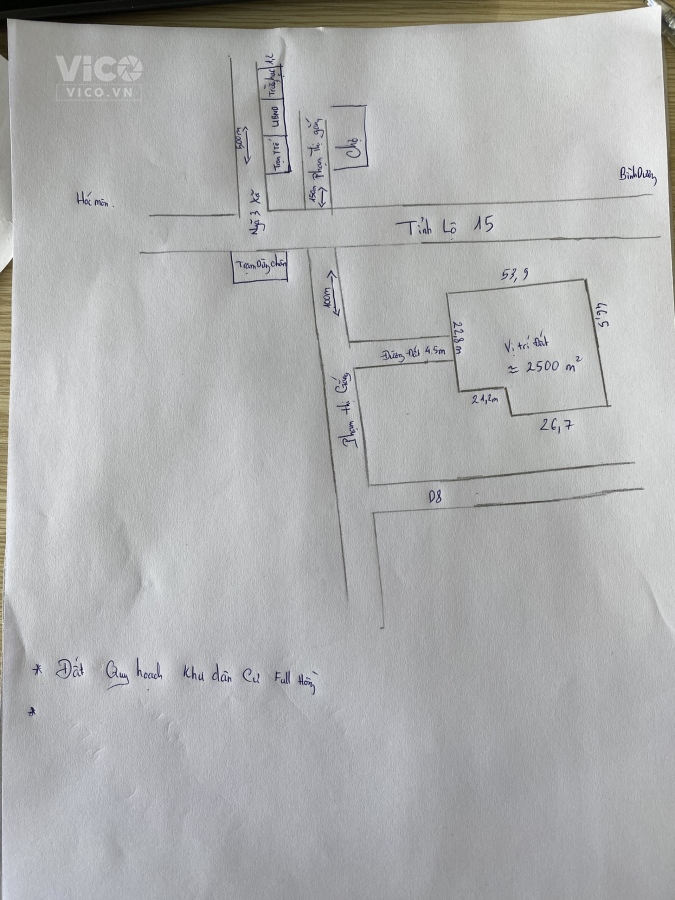 VICO
VICO.VN
500m
Trạm Y tế
UBND
Trường học 1,2
150m
Phạm thị giồng
Chợ
Bình Dương
Hóc môn.
Ngã 3 Xã
Tỉnh Lộ 15
Trạm Dừng chân
100m
53,9
46,5
22,8m
Vị trí Đất
≈ 2500 m²
Đường Đất 4.5m
21,2m
26,7
Phạm thị Giồng
D8
* Đất Quy hoạch Khu dân Cư Full Hồng
*